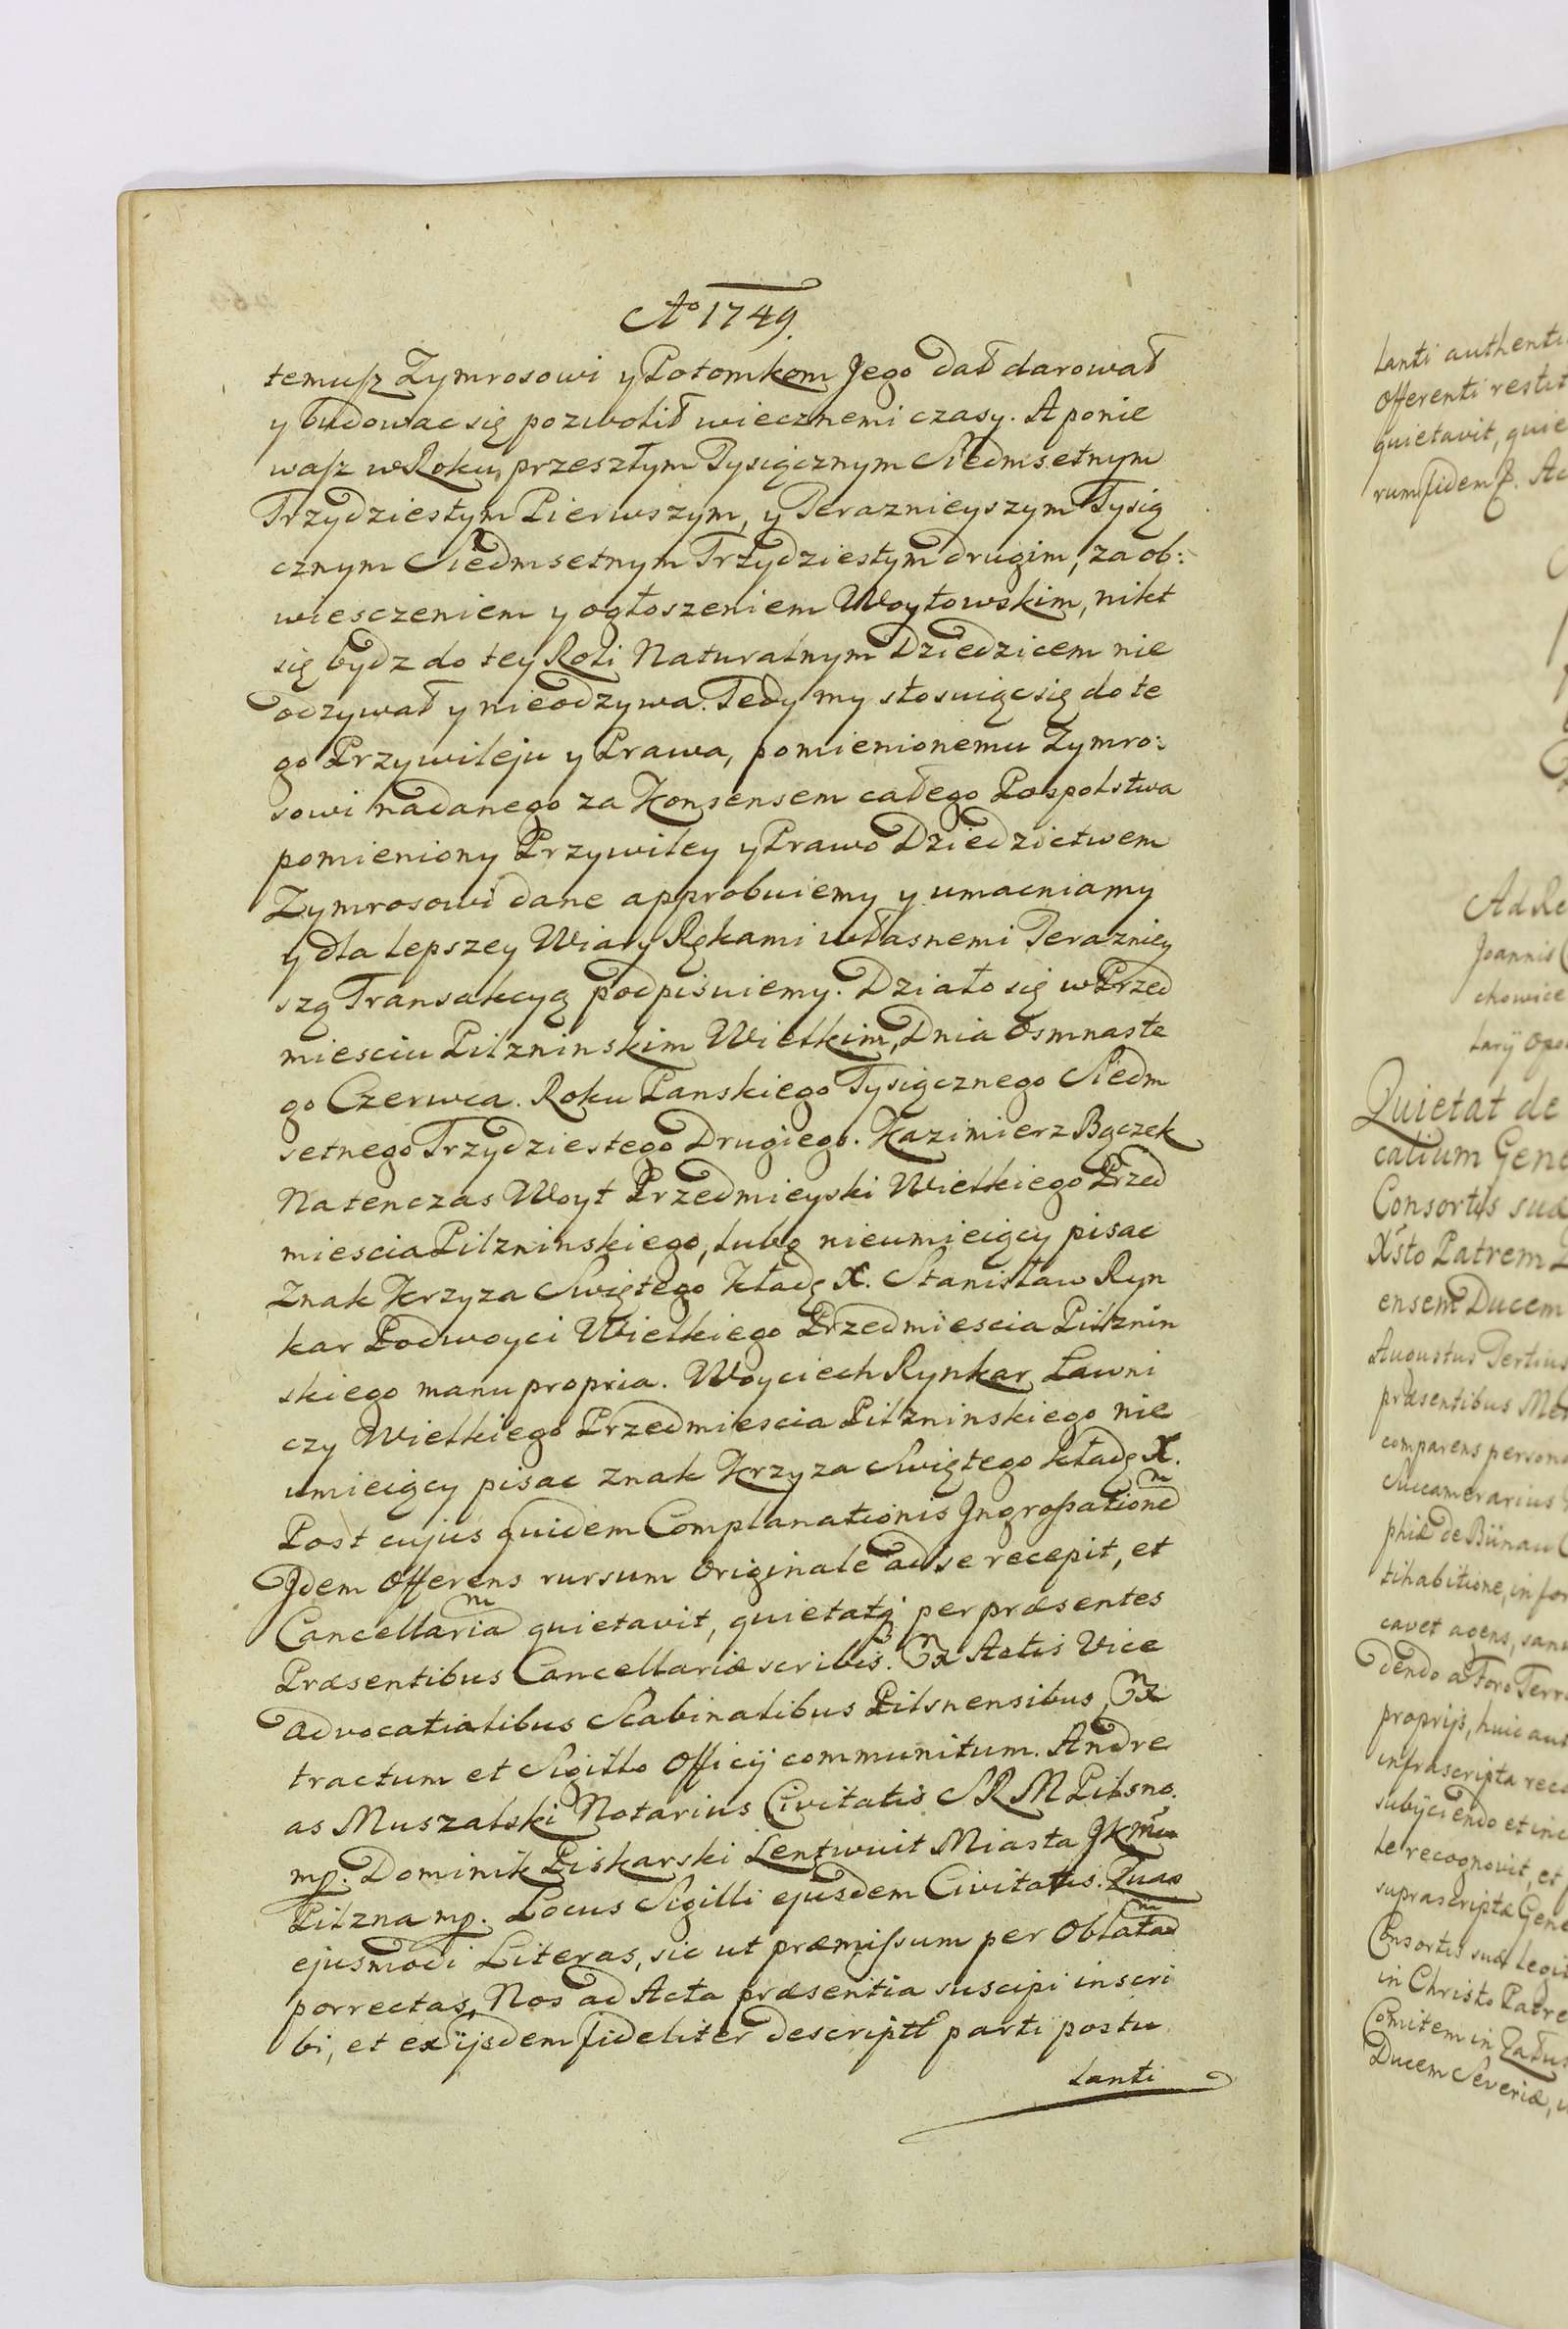 Ao 1749.
temuſz Zymrosowi y Potomkom Jego dał darował
y budowac się pozwolił wiecznemi czasy. A ponie
waſz w Roku przeszłym Tysiącznym Siedmsetnym
Trzydziestym Pierwszym, y Teraznieyszym Tysią
cznym Siedmsetnym Trzydziestym drugim, za ob:
wiesczeniem y ogłoszeniem Woytowskim, nikt
się bydz do tey Roli Naturalnym Dziedzicem nie
odzywał y nieodzywa. Tedy my stosuiąc się do te
go Przywileju y Prawa, pomienionemu Zymro:
sowi nadanego za Konsensem całego Pospolstwa
pomieniony Przywiley y Prawo Dziedzictwem
Zymrosowi dane approbuiemy y umacniamy
y dla lepszey Wiary Rękami własnemi Terazniey
szą Transakcyą podpisuiemy. Działo się w Przed
miesciu Pilzninskim Wielkim, Dnia Osmnaste
go Czerwca. Roku Panskiego Tysiącznego Siedm
setnego Trzydziestego Drugiego. Kazimierz Bączek
Natenczas Woyt Przedmieyski Wielkiego Przed
miescia Pilzninskiego, lubo nieumieiący pisac
Znak Krzyza Swiętego kładę X. Stanisław Ryn
kar Podwoyci Wielkiego Przedmiescia Pilznin
skiego manu propria. Woyciech Rynkar Ławni
czy Wielkiego Przedmiescia Pilzninskiego nie
umieiący pisac znak Krzyza Swiętego kładę X.
Post cujus quidem Complanationis Ingroſsationem
Idem Offerens rursum Originale ad se recepit, et
Cancellariam quietavit, quietatq per præsentes
Præsentibus Cancellariæ scribis. Ex Actis Vice
advocatialibus Scabinalibus Pilsnensibus Ex
tractum et Sigillo Officij communitum. Andre
as Muszalski Notarius Civitatis S R M Pilsno.
mp. Dominik Piskarski Lentwuit Miasta JKmci
Pilzna mp. Locus Sigilli ejusdem Civitatis. Quas
ejusmodi Literas, sic ut præmiſsum per Oblatam
porrectas, Nos ad Acta præsentia suscipi inscri
bi, et ex ijsdem fideliter descriptt parti postu
lanti
lanti authenti
Offerenti restit
quietavit, quie
rum fidem
Ad Re
Joannis
chowice
larij Opo
Quietat de
calium Gene
Consortis suæ
Xsto Patrem
ensem Ducem
Augustus Tertius
præsentibus
comparens persona
Succamerarius
phiæ de Bünau
tihabitione, in for
cavet agens, san
dendo a Foro Terr
proprijs, huic au
infrascripta reco
subijciendo et inc
le recognovit, et
suprascriptæ Gene
Consortis suæ legi
in Christo Patre
Comitem in Załus
Ducem Severiæ,